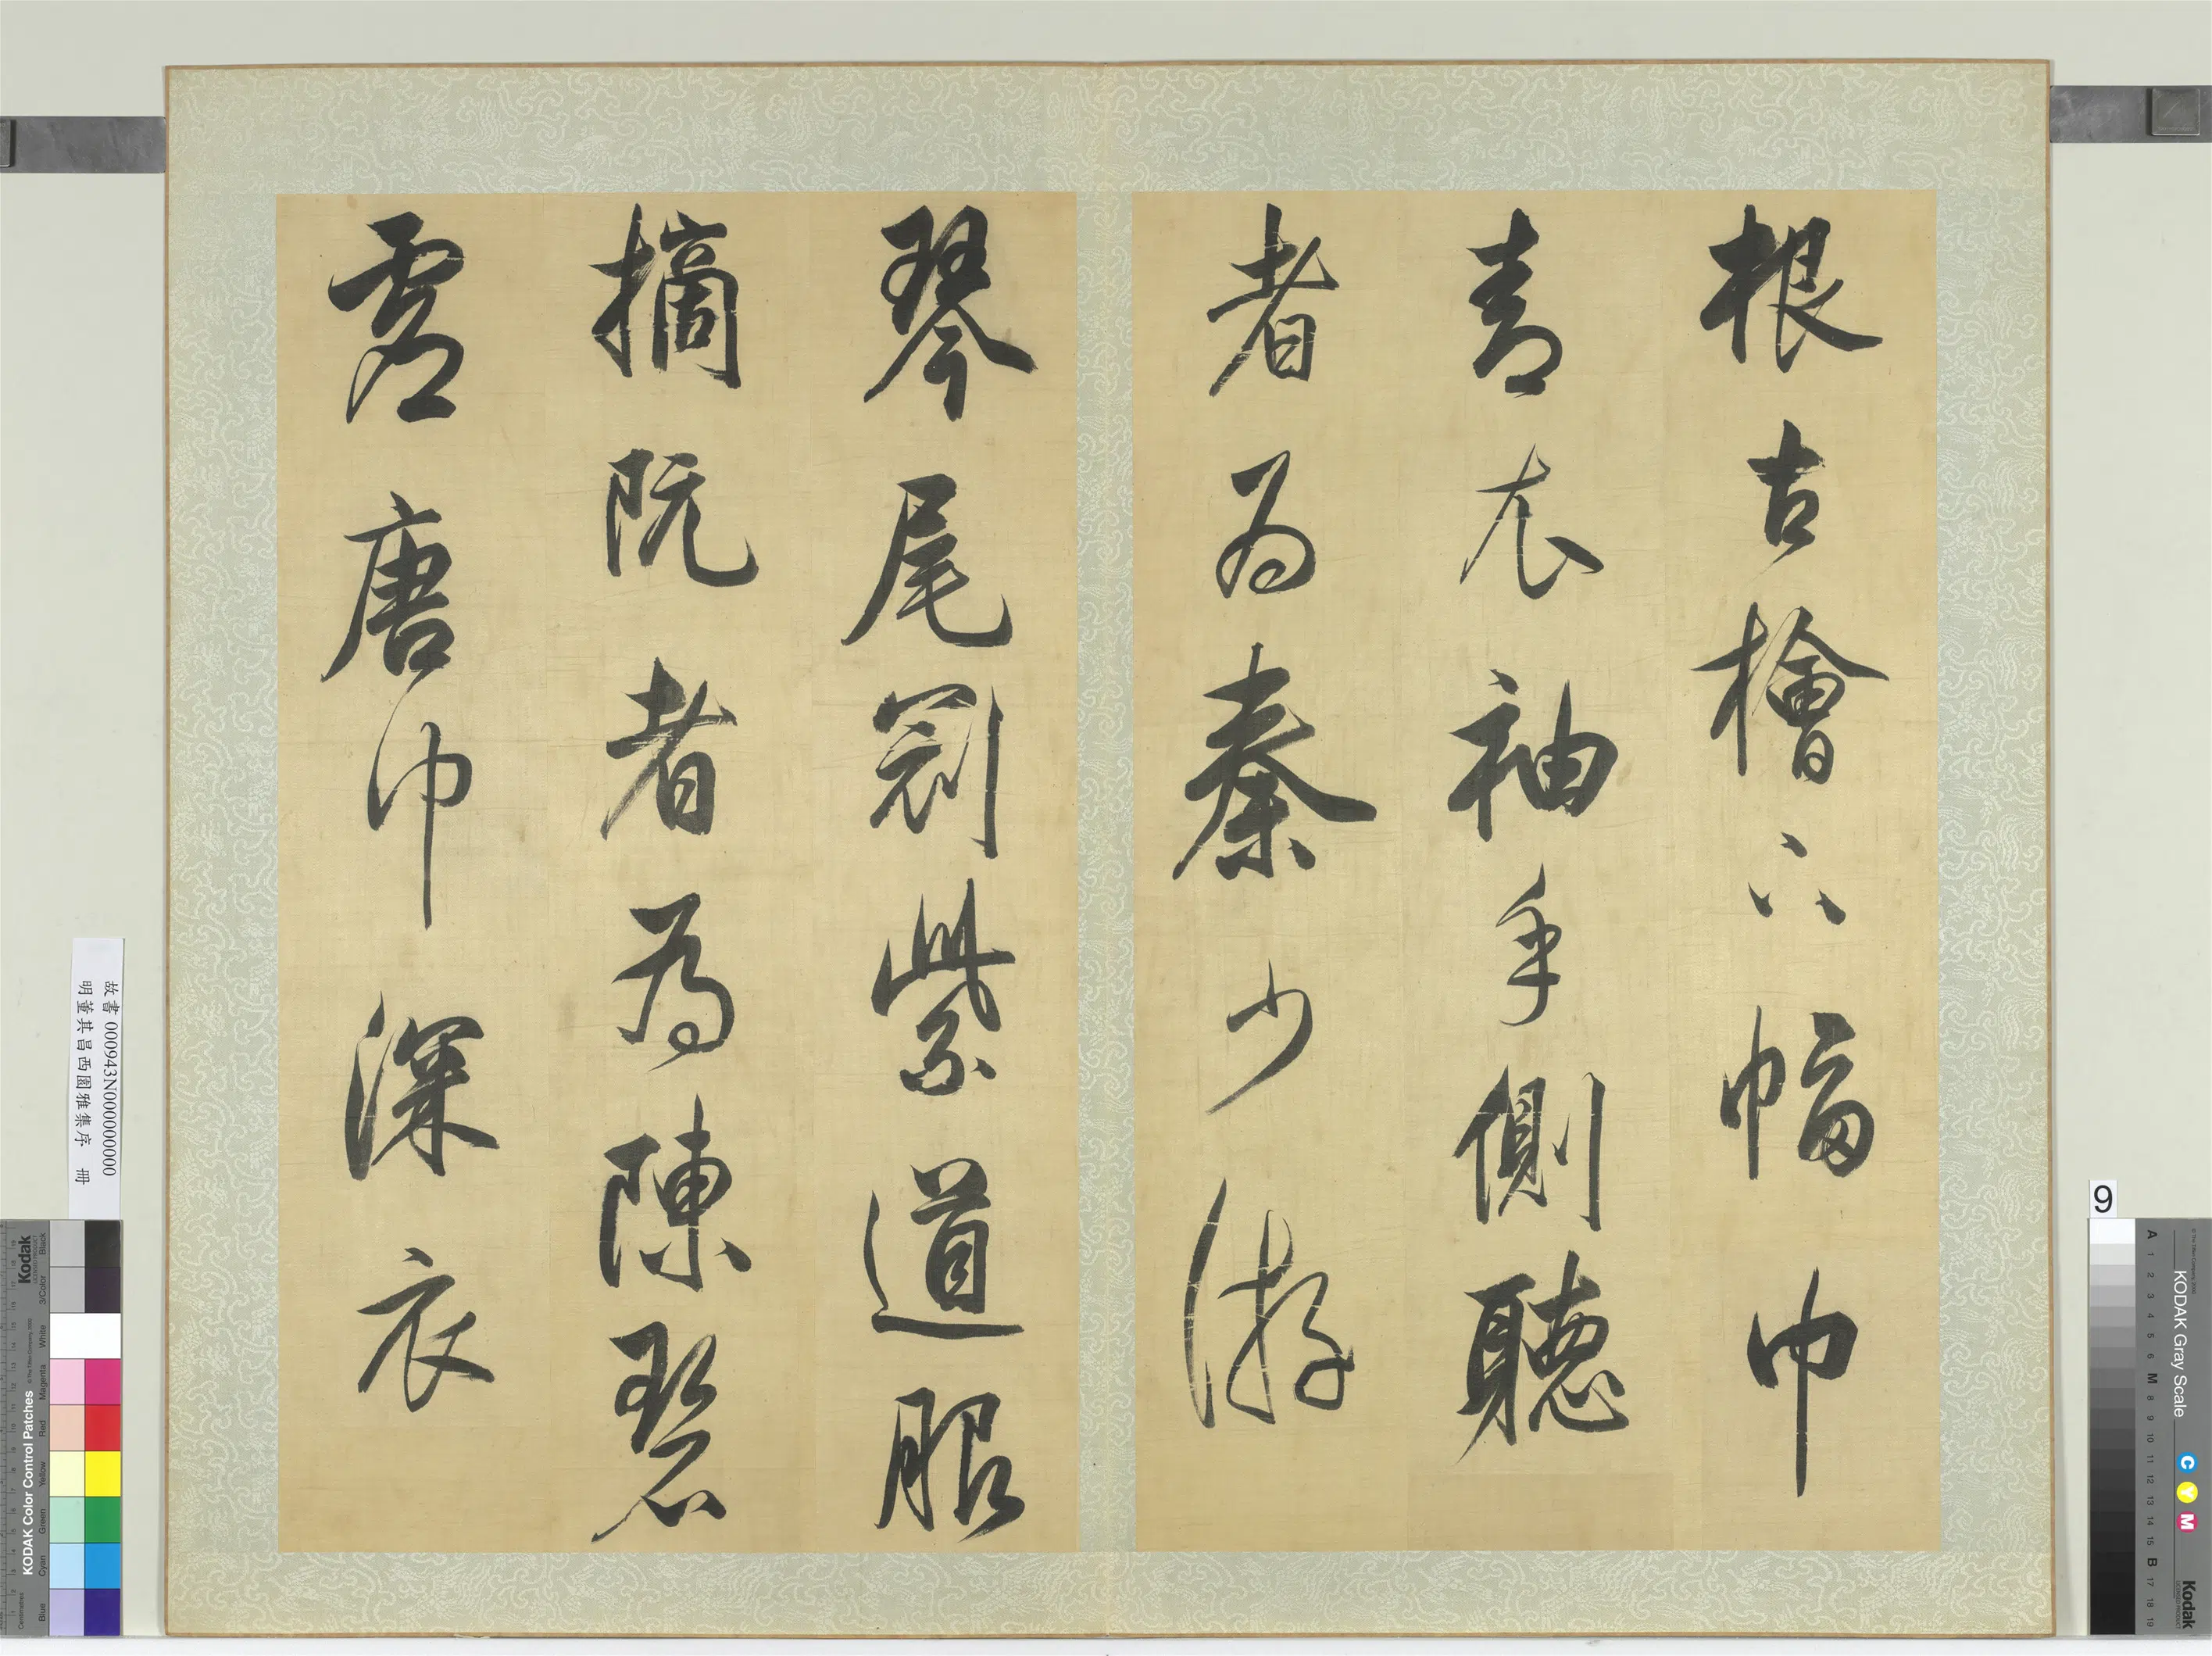 根古檜下幅巾
青衣袖手側聽
者為秦少游
琴尾冠紫道服
摘阮者為陳碧
虛唐巾深衣
故書 000943N000000000
明董其昌西園雅集序 冊
9
KODAK Gray Scale
C Y M
Kodak
A 1 2 3 4 5 6 M 8 9 10 11 12 13 14 15 B 17 18 19
Kodak
KODAK Color Control Patches
Blue Cyan Green Yellow Red Magenta White 3/Color Black
Centimetres